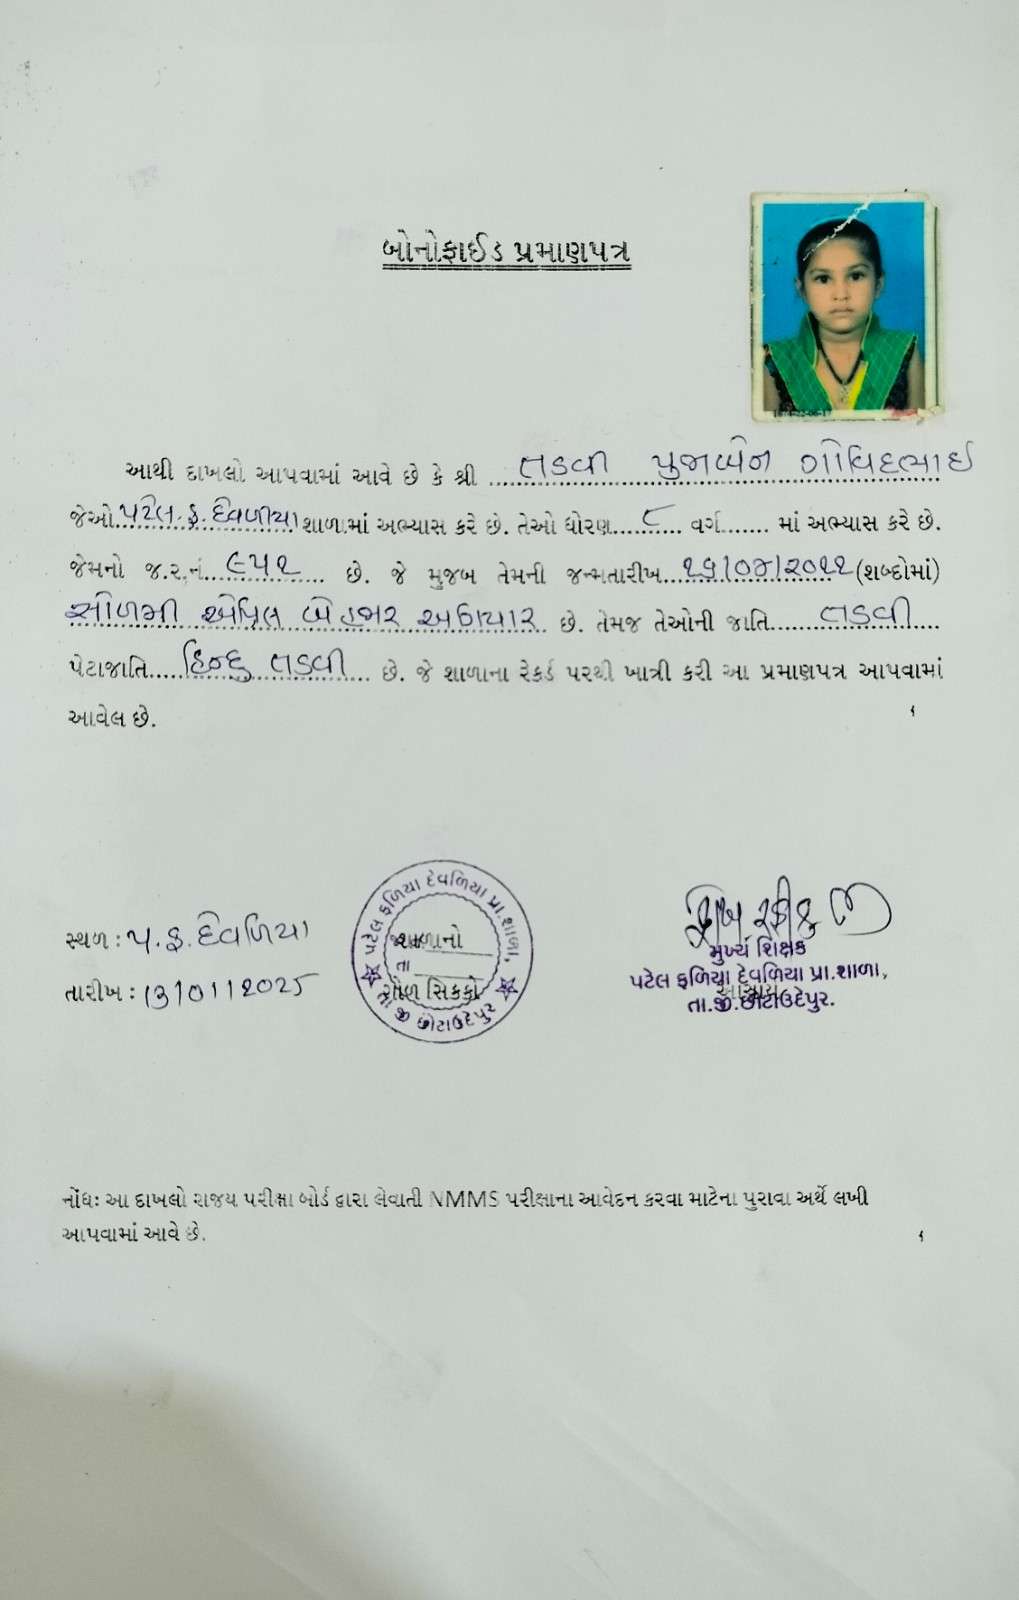 બોનોફાઈડ પ્રમાણપત્ર
આથી દાખલો આપવામાં આવે છે કે શ્રી તડવી પુજાબેન ગોવિંદભાઈ
જેઓ પટેલ. ફ. દેવળીયા શાળામાં અભ્યાસ કરે છે. તેઓ ધોરણ ૮ વર્ગ....... માં અભ્યાસ કરે છે.
જેમનો જ.ર.નં. ૯૫૧ છે. જે મુજબ તેમની જન્મતારીખ ૧૬/૦૪/૨૦૧૧ (શબ્દોમાં)
સોળમી એપ્રિલ બે હજાર અગિયાર છે. તેમજ તેઓની જાતિ તડવી
પેટાજાતિ હિન્દુ તડવી છે. જે શાળાના રેકર્ડ પરથી ખાત્રી કરી આ પ્રમાણપત્ર આપવામાં
આવેલ છે.
સ્થળ : પ. ફ. દેવળિયા
તારીખ : 13/01/2025
પટેલ ફળિયા દેવળિયા પ્રા.શાળા,
શાળાનો
તા
ગોળ સિક્કો
તા જી છોટાઉદેપુર
મુખ્ય શિક્ષક
પટેલ ફળિયા દેવળિયા પ્રા.શાળા,
આચાર્ય
તા.જી.છોટાઉદેપુર.
નોંધઃ આ દાખલો રાજય પરીક્ષા બોર્ડ દ્વારા લેવાતી NMMS પરીક્ષાના આવેદન કરવા માટેના પુરાવા અર્થે લખી
આપવામાં આવે છે.